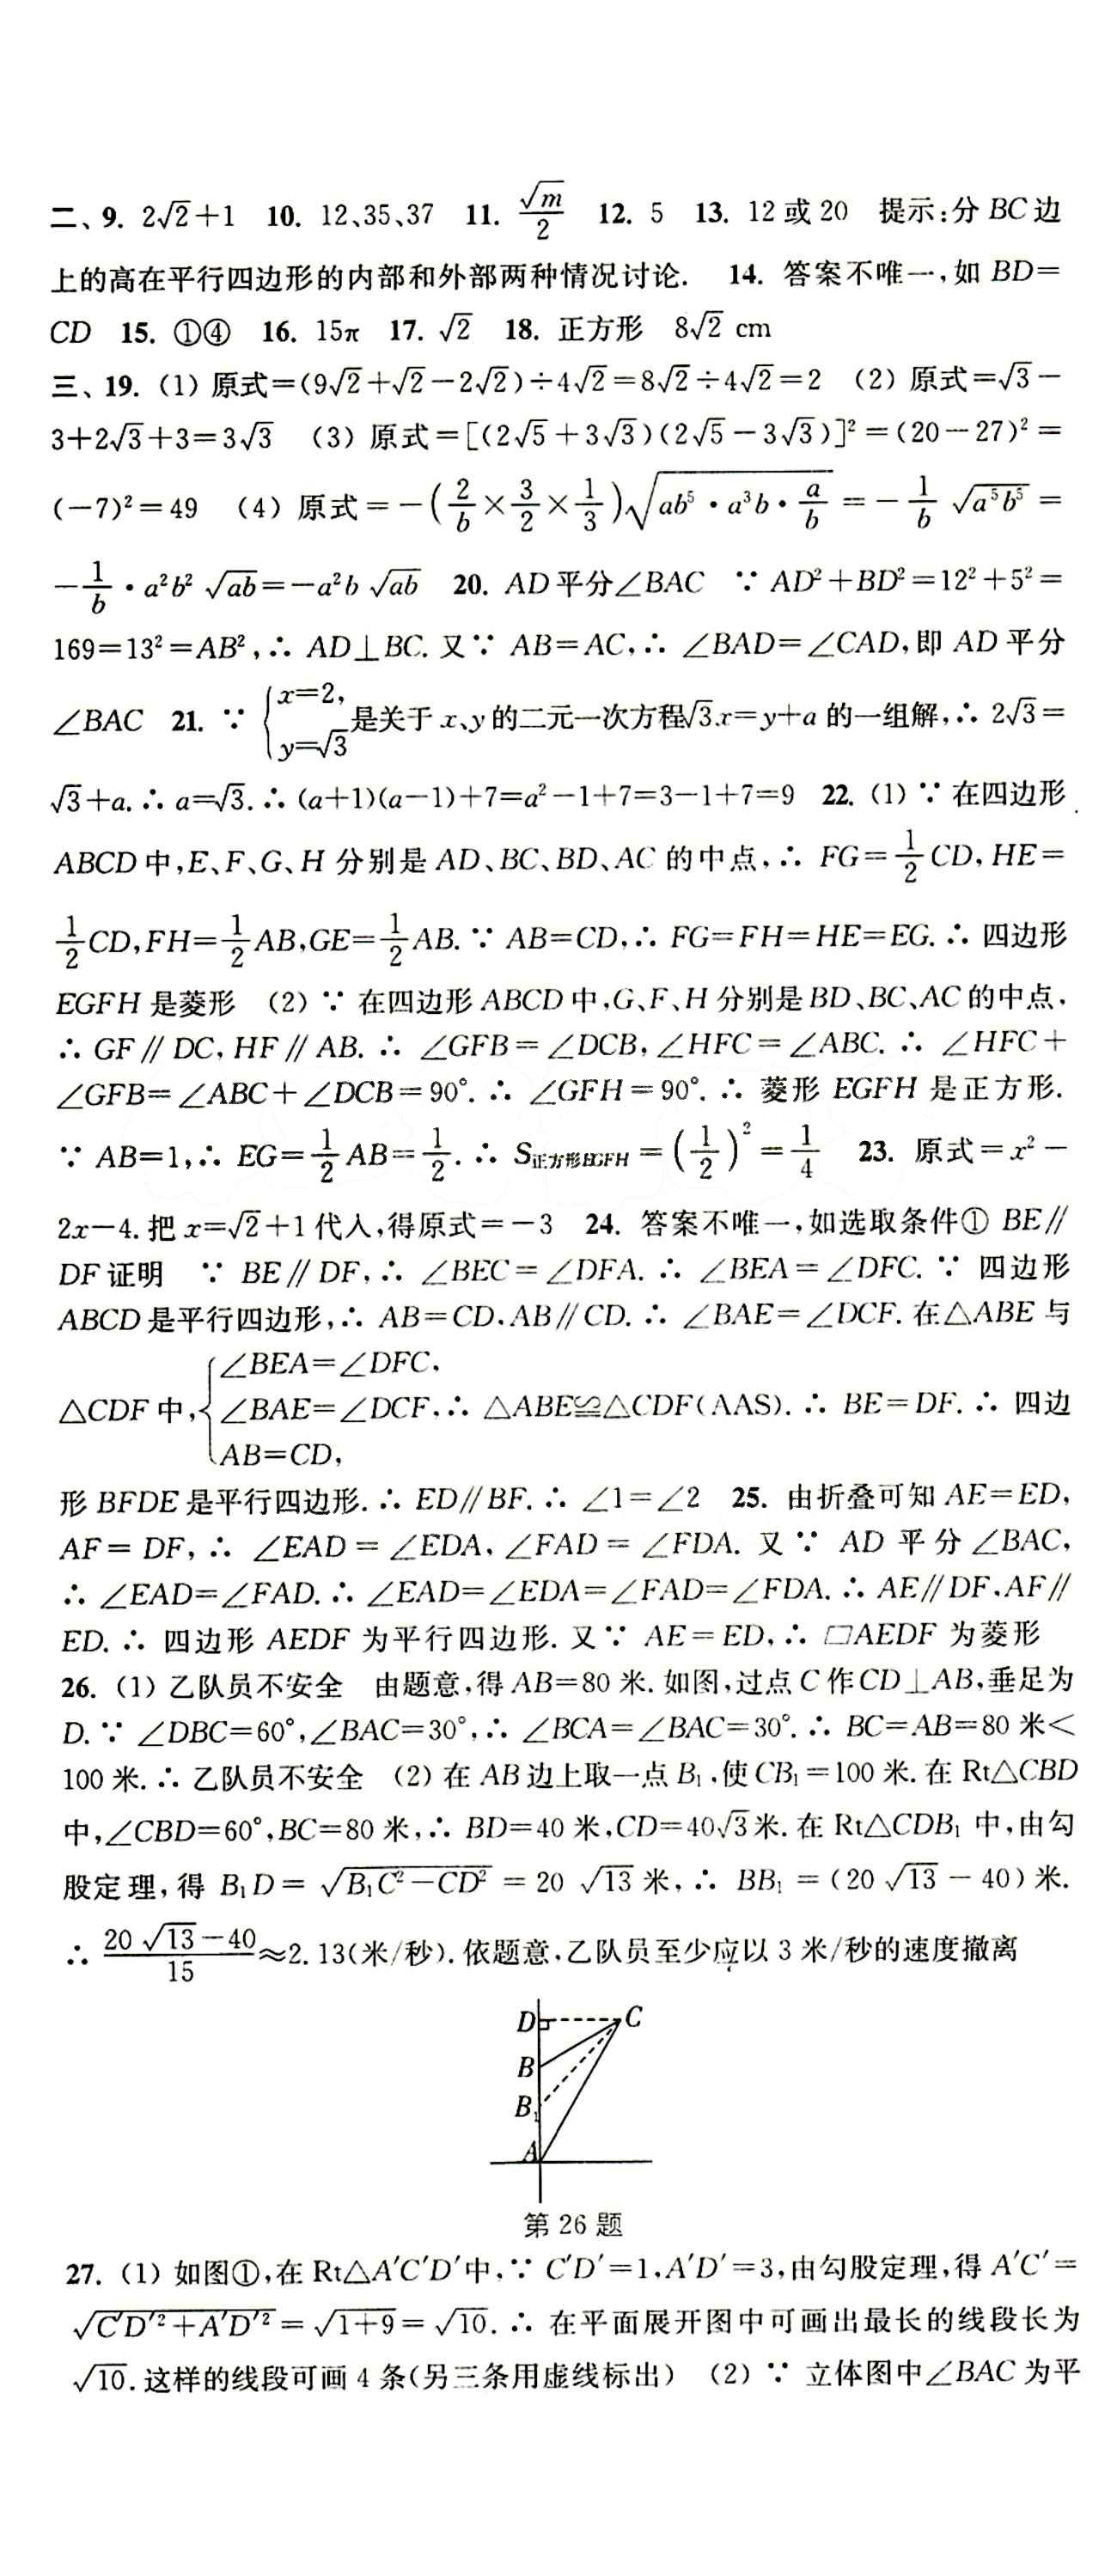 二、9. 2√2+1 10. 12、35、37 11. √m/2 12. 5 13. 12或20 提示:分BC边
上的高在平行四边形的内部和外部两种情况讨论. 14. 答案不唯一,如BD=
CD 15. ①④ 16. 15π 17. √2 18. 正方形 8√2 cm
三、19. (1) 原式=(9√2+√2-2√2)÷4√2=8√2÷4√2=2 (2) 原式=√3-
3+2√3+3=3√3 (3) 原式=[(2√5+3√3)(2√5-3√3)]²=(20-27)²=
(-7)²=49 (4) 原式=-(2/b×3/2×1/3)√(ab⁵·a³b·a/b)=-1/b √(a⁵b⁵)=
-1/b·a²b²√(ab)=-a²b√(ab) 20. AD平分∠BAC ∵ AD²+BD²=12²+5²=
169=13²=AB²,∴ AD⊥BC. 又∵ AB=AC,∴ ∠BAD=∠CAD,即AD平分
∠BAC 21. ∵ {x=2, y=√3 是关于x、y的二元一次方程√3x=y+a的一组解,∴ 2√3=
√3+a. ∴ a=√3. ∴ (a+1)(a-1)+7=a²-1+7=3-1+7=9 22. (1) ∵ 在四边形
ABCD中,E、F、G、H分别是AD、BC、BD、AC的中点,∴ FG=1/2CD,HE=
1/2CD,FH=1/2AB,GE=1/2AB. ∵ AB=CD,∴ FG=FH=HE=EG. ∴ 四边形
EGFH是菱形 (2) ∵ 在四边形ABCD中,G、F、H分别是BD、BC、AC的中点,
∴ GF∥DC,HF∥AB. ∴ ∠GFB=∠DCB,∠HFC=∠ABC. ∴ ∠HFC+
∠GFB=∠ABC+∠DCB=90°. ∴ ∠GFH=90°. ∴ 菱形EGFH是正方形.
∵ AB=1,∴ EG=1/2AB=1/2. ∴ S正方形EGFH=(1/2)²=1/4 23. 原式=x²-
2x-4. 把x=√2+1代入,得原式=-3 24. 答案不唯一,如选取条件① BE∥
DF证明 ∵ BE∥DF,∴ ∠BEC=∠DFA. ∴ ∠BEA=∠DFC. ∵ 四边形
ABCD是平行四边形,∴ AB=CD,AB∥CD. ∴ ∠BAE=∠DCF. 在△ABE与
△CDF中,{∠BEA=∠DFC, ∠BAE=∠DCF, AB=CD, ∴ △ABE≌△CDF(AAS). ∴ BE=DF. ∴ 四边
形BFDE是平行四边形. ∴ ED∥BF. ∴ ∠1=∠2 25. 由折叠可知AE=ED,
AF=DF,∴ ∠EAD=∠EDA,∠FAD=∠FDA. 又∵ AD平分∠BAC,
∴ ∠EAD=∠FAD. ∴ ∠EAD=∠EDA=∠FAD=∠FDA. ∴ AE∥DF,AF∥
ED. ∴ 四边形AEDF为平行四边形. 又∵ AE=ED,∴ □AEDF为菱形
26. (1) 乙队员不安全 由题意,得AB=80米. 如图,过点C作CD⊥AB,垂足为
D. ∵ ∠DBC=60°,∠BAC=30°,∴ ∠BCA=∠BAC=30°. ∴ BC=AB=80米<
100米. ∴ 乙队员不安全 (2) 在AB边上取一点B₁,使CB₁=100米. 在Rt△CBD
中,∠CBD=60°,BC=80米,∴ BD=40米,CD=40√3米. 在Rt△CDB₁中,由勾
股定理,得B₁D=√(B₁C²-CD²)=20√13米,∴ BB₁=(20√13-40)米.
∴ (20√13-40)/15≈2.13(米/秒). 依题意,乙队员至少应以3米/秒的速度撤离
D C
B
B₁
A
第26题
27. (1) 如图①,在Rt△A′C′D′中,∵ C′D′=1,A′D′=3,由勾股定理,得A′C′=
√(C′D′²+A′D′²)=√(1+9)=√10. ∴ 在平面展开图中可画出最长的线段长为
√10. 这样的线段可画4条(另三条用虚线标出) (2) ∵ 立体图中∠BAC为平